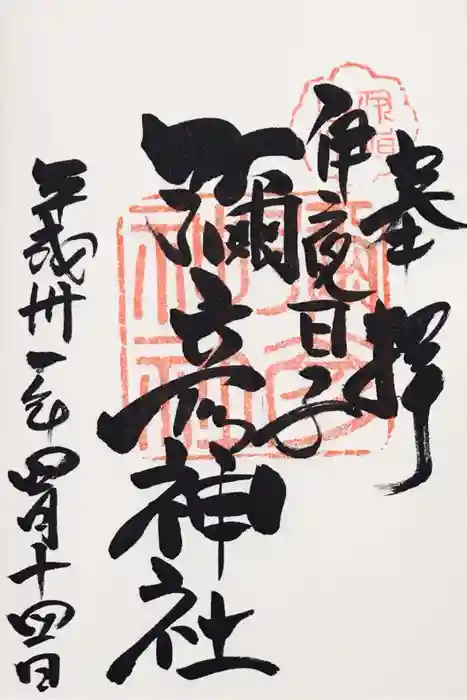 奉拝
伊夜日子
彌彦神社
平成卅一年四月十四日